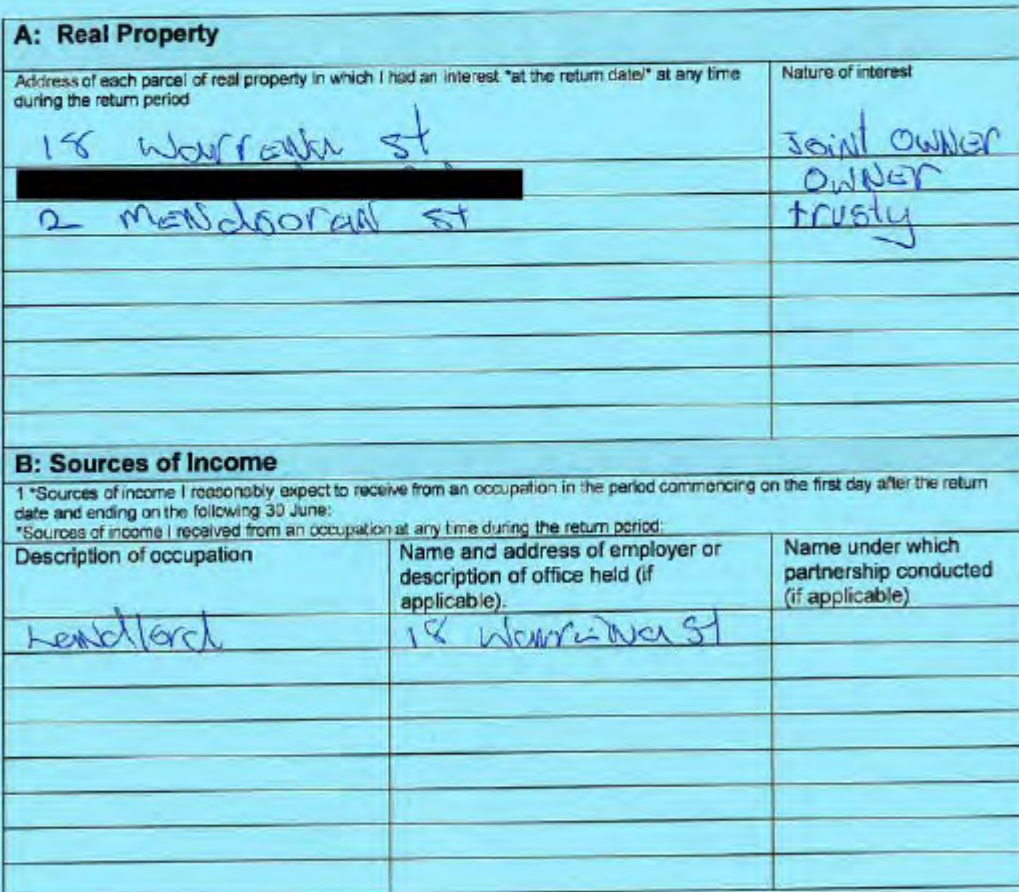 A: Real Property
Address of each parcel of real property in which I had an interest *at the return date/* at any time during the return period
Nature of interest
18 Warrena St
Joint owner
owner
2 Mendooran St
trusty
B: Sources of Income
1 *Sources of income I reasonably expect to receive from an occupation in the period commencing on the first day after the return
date and ending on the following 30 June:
*Sources of income I received from an occupation at any time during the return period:
Description of occupation
Name and address of employer or
description of office held (if
applicable).
Name under which
partnership conducted
(if applicable)
Landlord
18 Warrina St